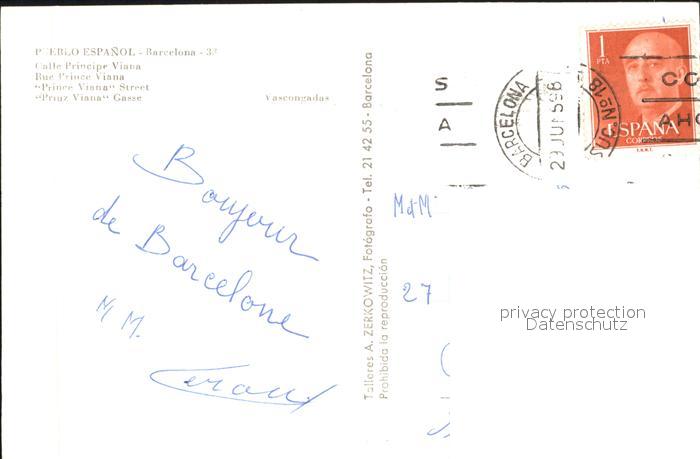 PUEBLO ESPAÑOL - Barcelona - 33
Calle Principe Viana
Rue Prince Viana
"Prince Viana" Street
"Prinz Viana" Gasse Vascongadas
Bonjour
de Barcelone
M M.
Talleres A. ZERKOWITZ, Fotógrafo - Tel. 21 42 55 - Barcelona
Prohibida la reproducción
S
A
BARCELONA
29 JUN 59
SUC Nº18
CO
AHO
1
PTA
ESPAÑA
CORREOS
F.N.M.T.
M et M
27
privacy protection
Datenschutz